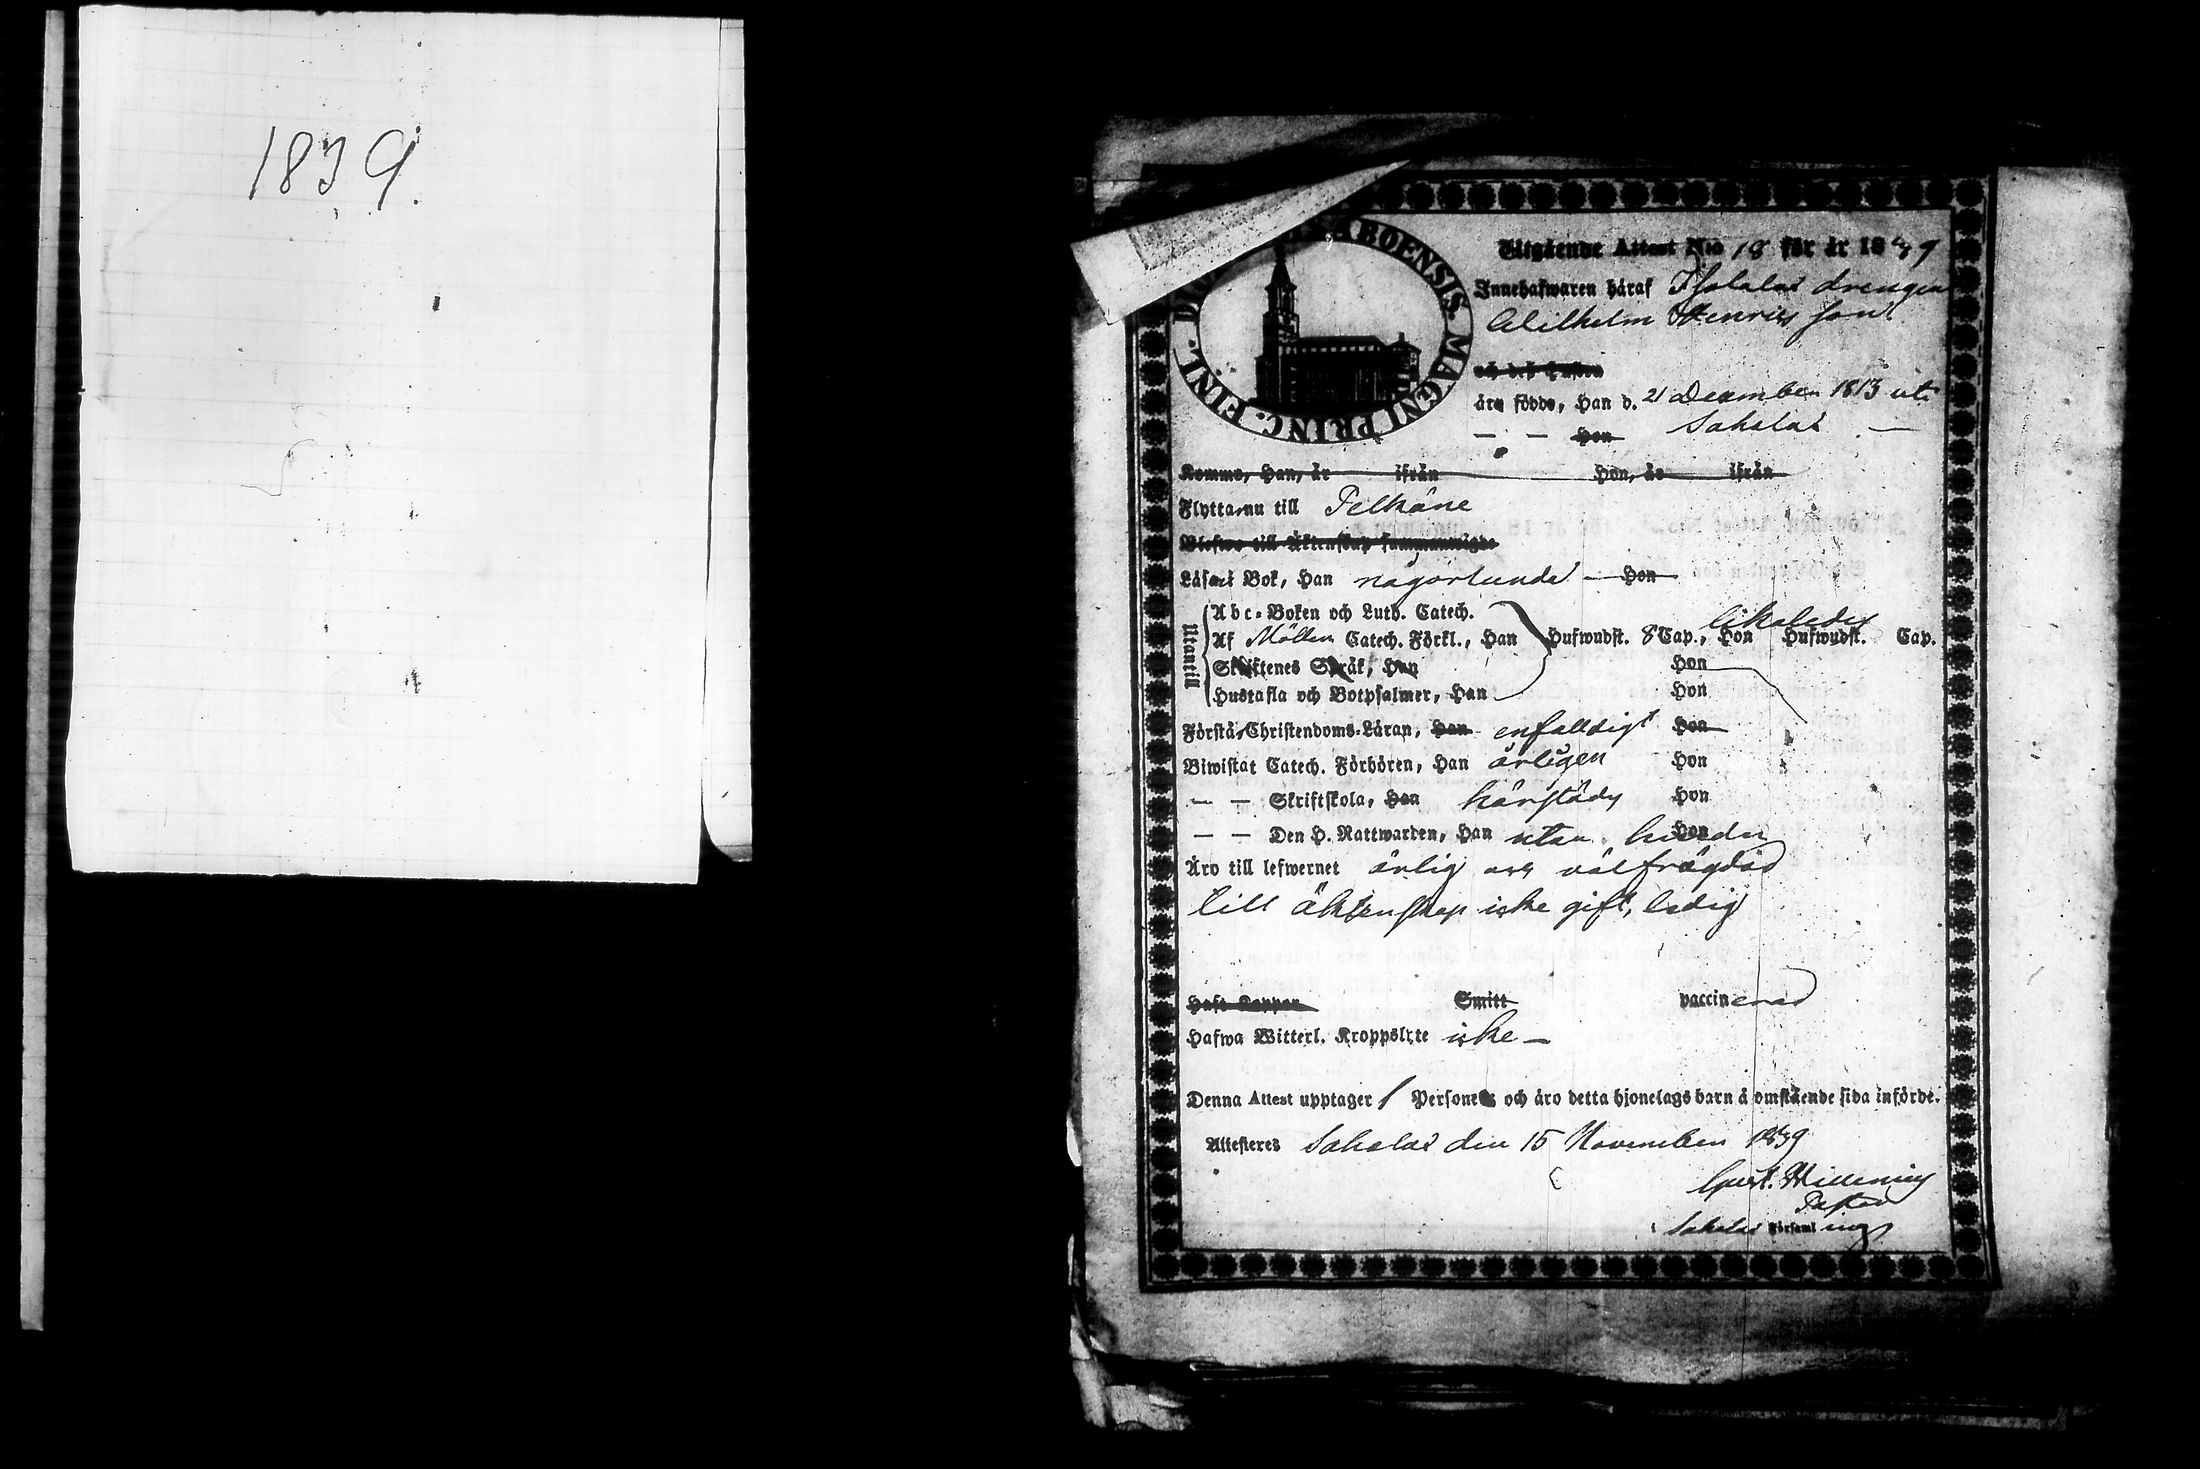 1839.
ABOENSIS. MAGNI PRINC. FINL.
Utgående Attest N:o 18 för år 1839
Innehafwaren häraf drengen
Wilhelm Henrics son
och dess hustru
äro födde, Han d. 21 December 1813 uti
— — Hon Sahalax —
Komme, Han, år ifrån Hon, år ifrån
Flytta nu till Pelkäne
Blefwo till Äktenskap sammanwigde
Läsa i Bok, Han någorlunda — Hon
Utantill
Abc-Boken och Luth. Catech.
Af Möllers Catech. Förkl., Han Hufwudst. 8 Cap., Hon likaledes Hufwudst. Cap.
Skriftenes Språk, Han Hon
Hustafla och Botpsalmer, Han Hon
Förstå Christendoms-Läran, Han enfalldigt Hon
Biwistat Catech. Förhören, Han årligen Hon
— — Skriftskola, Han härstädes Hon
— — Den H. Nattwarden, Han utan hinder Hon
Äro till lefwernet ärlig och välfrägdad
till äktenskap icke gift, ledig
Haft Koppor Smitt vaccinerad
Hafwa Witterl. Kroppslyte icke —
Denna Attest upptager 1 Personer och äro detta hjonelags barn å omstående sida införde.
Attesteres Sahalax den 15 November 1839
Gust.
Pastor
i Sahalax Församling